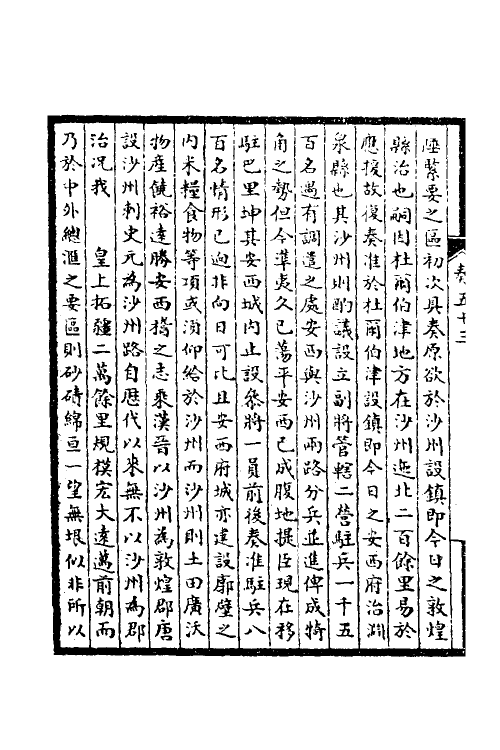 壓緊要之區初次具奏原欲於沙州設鎮即今日之敦煌
縣治也嗣因杜爾伯津地方在沙州迤北二百餘里易於
應援故復奏准於杜爾伯津設鎮即今日之安西府治淵
泉縣也其沙州則酌議設立副將管轄二營駐兵一千五
百名遇有調遣之處安西與沙州兩路分兵並進俾成犄
角之勢但今準夷久已蕩平安西已成腹地提臣現在移
駐巴里坤其安西城內止設叅將一員前後奏准駐兵八
百名情形已迥非向日可比且安西府城亦建設廓壁之
內米糧食物等項或湏仰給於沙州而沙州則土田廣沃
物產饒裕遠勝安西稽之志乘漢晉以沙州為敦煌郡唐
設沙州刺史元為沙州路自歷代以來無不以沙州為郡
治况我 皇上拓疆二萬餘里規模宏大遠邁前朝而
乃於中外總滙之要區則砂磧綿亘一望無垠似非所以
卷五十三